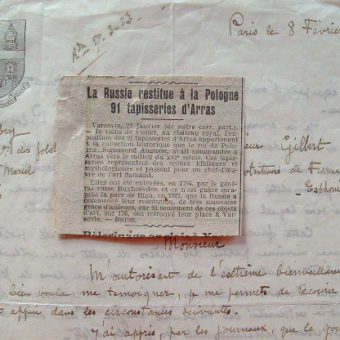 Paris le 8 Février
La Russie restitue à la Pologne
91 tapisseries d'Arras
Varsovie, 27 janvier (de notre corr. part.).
— Je viens de visiter, au château royal, l'ex-
position des 91 tapisseries d'Arras appartenant
à la collection historique que le roi de Polo-
gne, Sigismond Auguste, avait commandée à
Arras vers le milieu du XVIe siècle. Ces tapis-
series représentant des scènes bibliques et
mythologiques et passent pour un chef-d'œu-
vre de l'art flamand.
Elles ont été enlevées, en 1794, par le géné-
ral russe
de Riga, en 1921, que la
commencer leur restitution, de très mauvaise
grâce d'ailleurs, car 91 seulement de ces objets
d'art, sur 156, ont retrouvé leur place à Var-
sovie.
Gilbert
de France
Monsieur
M'autorisant de l'extrême bienveillan
bien voulu me témoigner, je me permets de recourir
appui dans les circonstances suivantes.
J'ai appris, par les journaux, que le gou